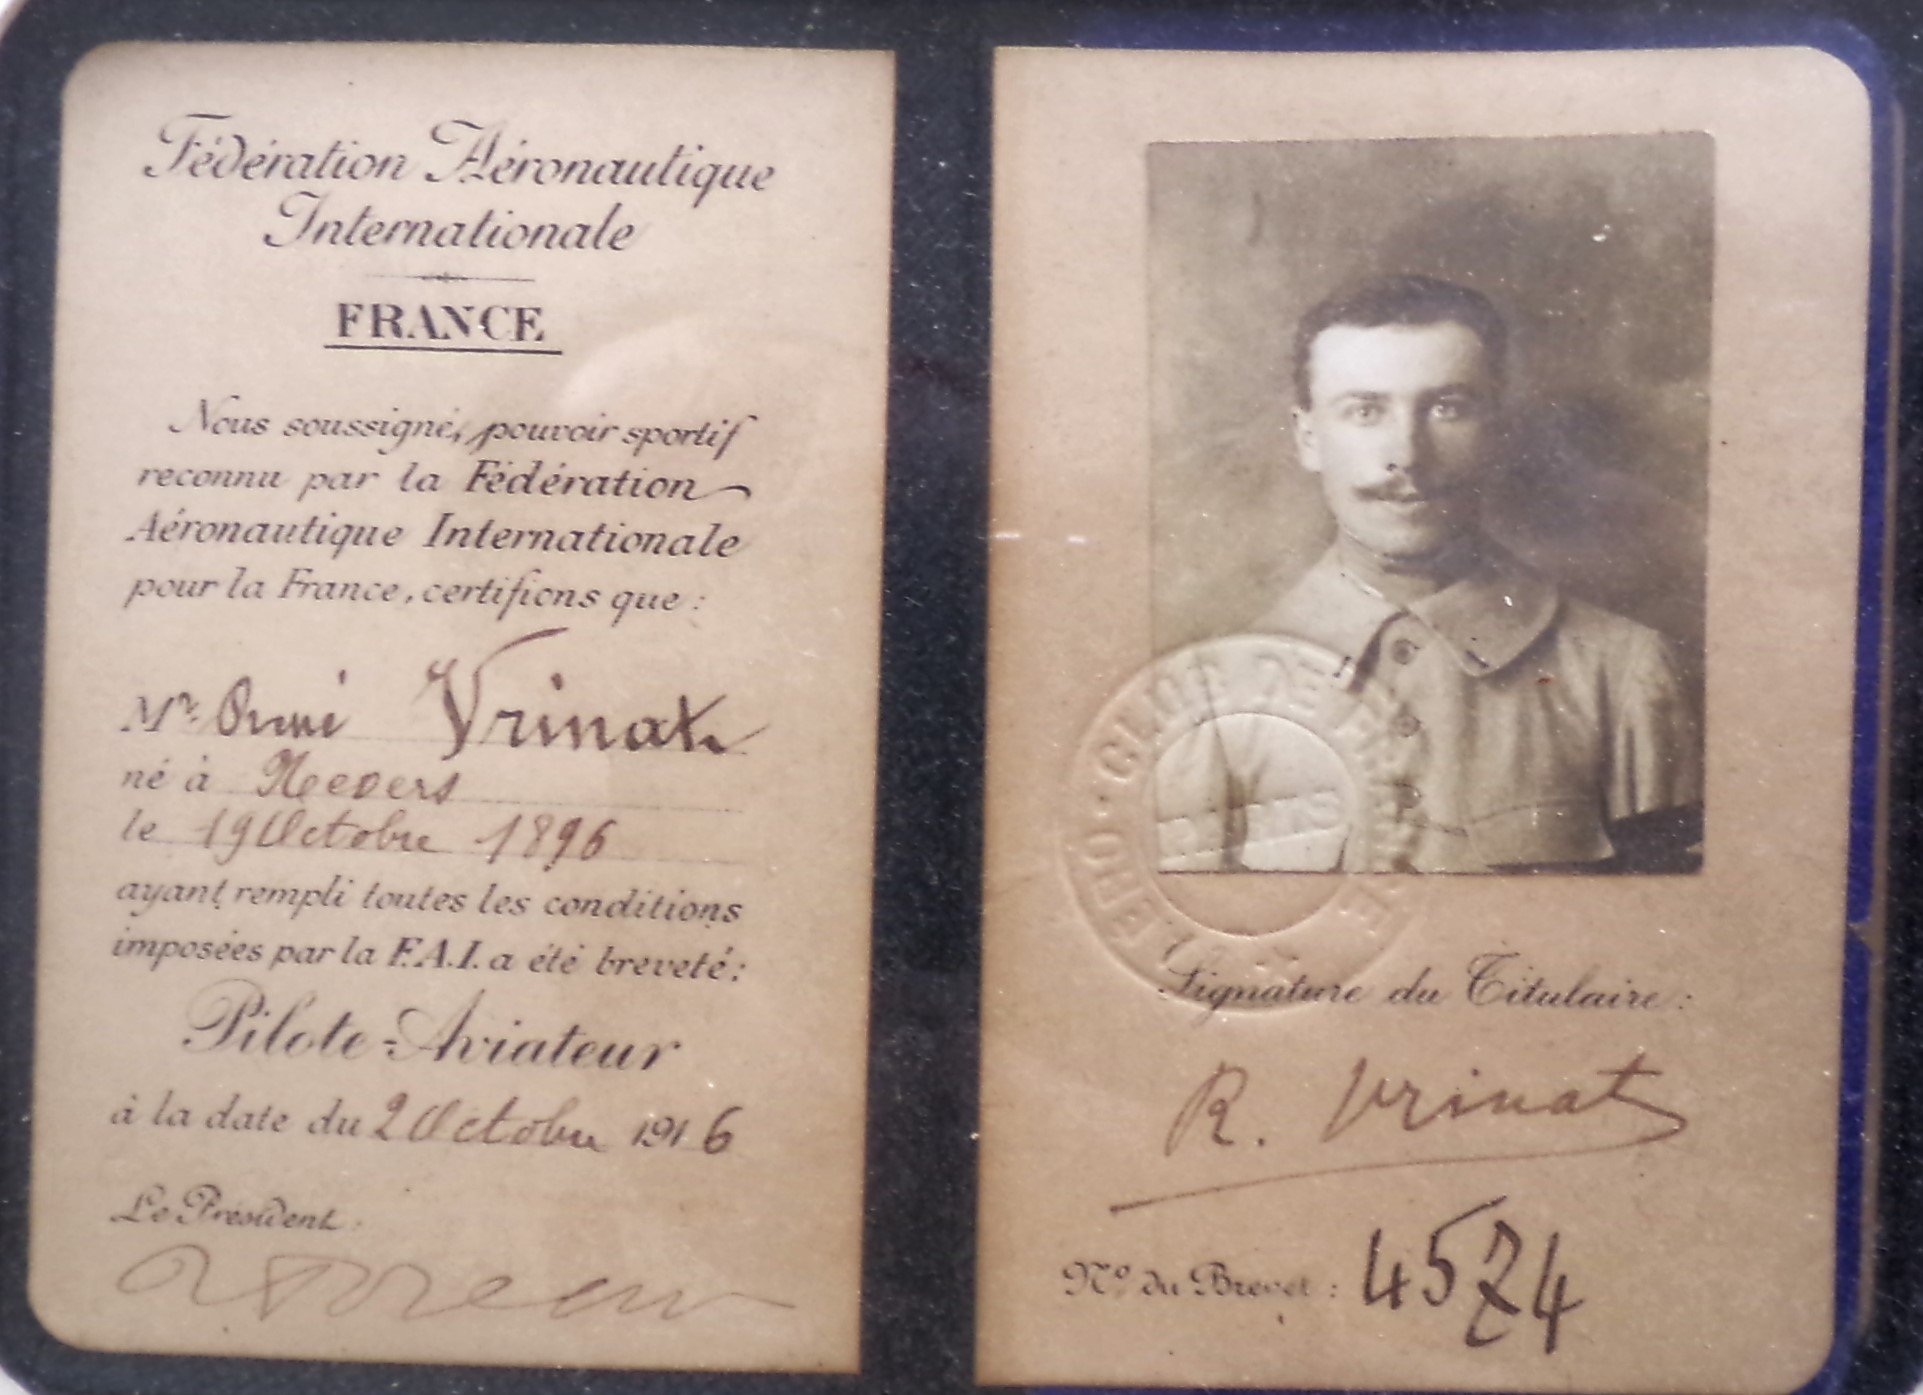 Fédération Aéronautique
Internationale
FRANCE
Nous soussigné, pouvoir sportif
reconnu par la Fédération
Aéronautique Internationale
pour la France, certifions que :
Mr. Vrinat
né à Nevers
le 19 Octobre 1896
ayant rempli toutes les conditions
imposées par la F.A.I. a été breveté :
Pilote-Aviateur
à la date du 2 Octobre 1916
Le Président :
AERO-CLUB DE FRANCE
PARIS
Signature du Titulaire :
R. Vrinat
No du Brevet : 4574